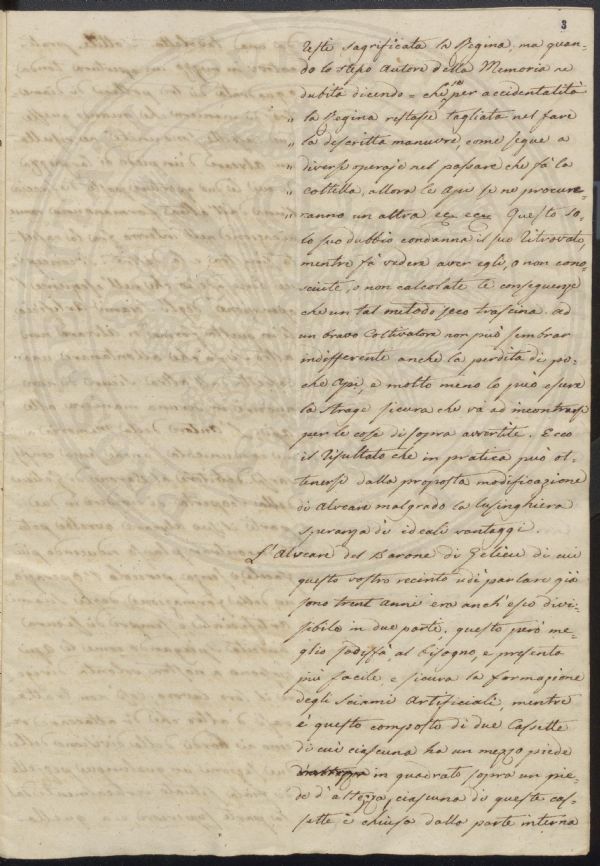 3
resti sagrificata la Regina; ma quan-
do lo stesso Autore della Memoria ne
dubita dicendo = che se per accidentalità
" la Regina restasse tagliata nel fare
" la descritta manuvre, come segue a
" diversi operaje nel passare che fà la
" coltella, allora le Api se ne procure-
" ranno un altra ecc ecc. Questo so-
lo suo dubbio condanna il suo ritrovato,
mentre fà vedere aver egli, o non cono-
sciute, o non calcolate le conseguenze
che un tal metodo seco trascina. ad
un bravo Coltivatore non può sembrar
indifferente anche la perdita di po-
che Api, e molto meno lo può essere
la strage sicura che và ad incontrarsi
per le cose di sopra avvertite. Ecco
il risultato che in pratica può ot-
tenersi dalla proposta modificazione
di Alveare malgrado la lusinghiera
speranza di ideali vantaggi.
L'Alveare del Barone di Gelieu di cui
questo vostro recinto udì parlare già
sono trent'anni era anch'esso divi-
sibile in due parti; questo però me-
glio sodisfà, al bisogno, e presenta
più facile e sicura la formazione
degli Sciami Artificiali, mentre
è questo composto di due Cassette
di cui ciascuna ha un mezzo piede
in quadrato, sopra un pie-
de d'altezza, ciascuna di queste cas-
sette è chiusa dalla parte interna